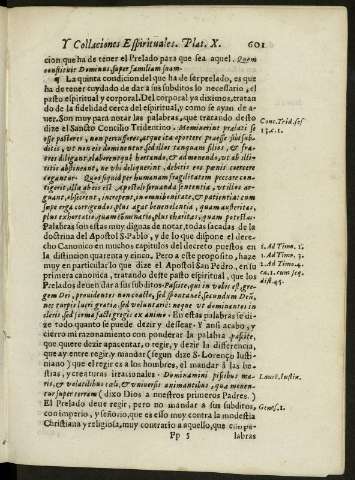 Y Collaciones Espirituales. Plat. X. 601
cion, que ha de tener el Prelado para que sea aquel. Quem
constituit Dominus super familiam suam.
¶ La quinta condicion del que ha de ser prelado, es que
ha de tener cuydado de dar a sus subditos lo necessario, el
pasto espiritual y corporal. Del corporal ya diximos, tratan
do de la fidelidad cerca del espiritual, como se ayan de a-
uer. Son muy para notar las palabras, que tratando desto
dize el Sancto Concilio Tridentino. Meminerint prælati se
esse pastores, non percussores, atque ita oportere præesse sibi sub-
ditis, ut non eis dominentur, sed illos tanquam filios, & fra-
tres diligant, elaborentque hortando, & admonendo, ut ab illi-
citis absineant, ne vbi deliquerint, debitis eos pœnis coercere
cogantur. Quos si quid per humanam fragilitatem peccare con-
tigerit, illa ab eis est Apostoli seruanda sententia, vt illos ar-
guant, obsecrent, increpent, in omni bonitate, & patientia: cum
sæpe erga corrigendos, plus agat beneuolentia, quam austeritas,
plus exhortatio, quam comminatio, plus charitas, quam potestas.
Palabras son estas muy dignas de notar, todas sacadas de la
doctrina del Apostol S. Pablo, y de lo que dispone el dere-
cho Canonico en muchos capitulos del decreto puestos en
la distincion quarenta y cinco. Pero a este proposito, haze
muy en particular lo que dize el Apostol San Pedro, en su
primera canonica, tratando deste pasto espiritual, que los
Prelados deuen dar a sus subditos. Pascite, qui in vobis est, gre-
gem Dei, prouidentes non coacte, sed spontanee, secundum Deum,
nec turpis lucri gratia, sed voluntarie: neque vt dominantes in
cleris, sed forma facti gregis ex animo. En estas palabras se di-
ze todo quanto se puede dezir y dessear. Y ansi acabo, y
cierro mi razonamiento con ponderar la palabra pascite,
que quiere dezir apacentar, o regir, y dezir la diferencia,
que ay entre regir y mandar (segun dize S. Lorenço Iusti-
niano) que el regir es a los hombres, el mandar a las be-
stias, y creaturas irracionales. Dominamini piscibus ma-
ris, & volatilibus cæli, & vniuersis animantibus, quæ mouen-
tur super terram (dixo Dios a nuestros primeros Padres.)
El Prelado deue regir, pero no mandar a sus subditos,
con imperio, y señorio, que es esso muy contra la modestia
Christiana y religiosa, muy contrario a aquello, que con pa-
Pp 5 labras
Conc. Trid. ses
13. c. 1.
1. Ad Timo. 1.
1. Ad Timo. 3.
2. Ad Timo. 4.
ca. 1. cum seq.
dist. 45.
Laurē. Iustin.
Genes. 1.